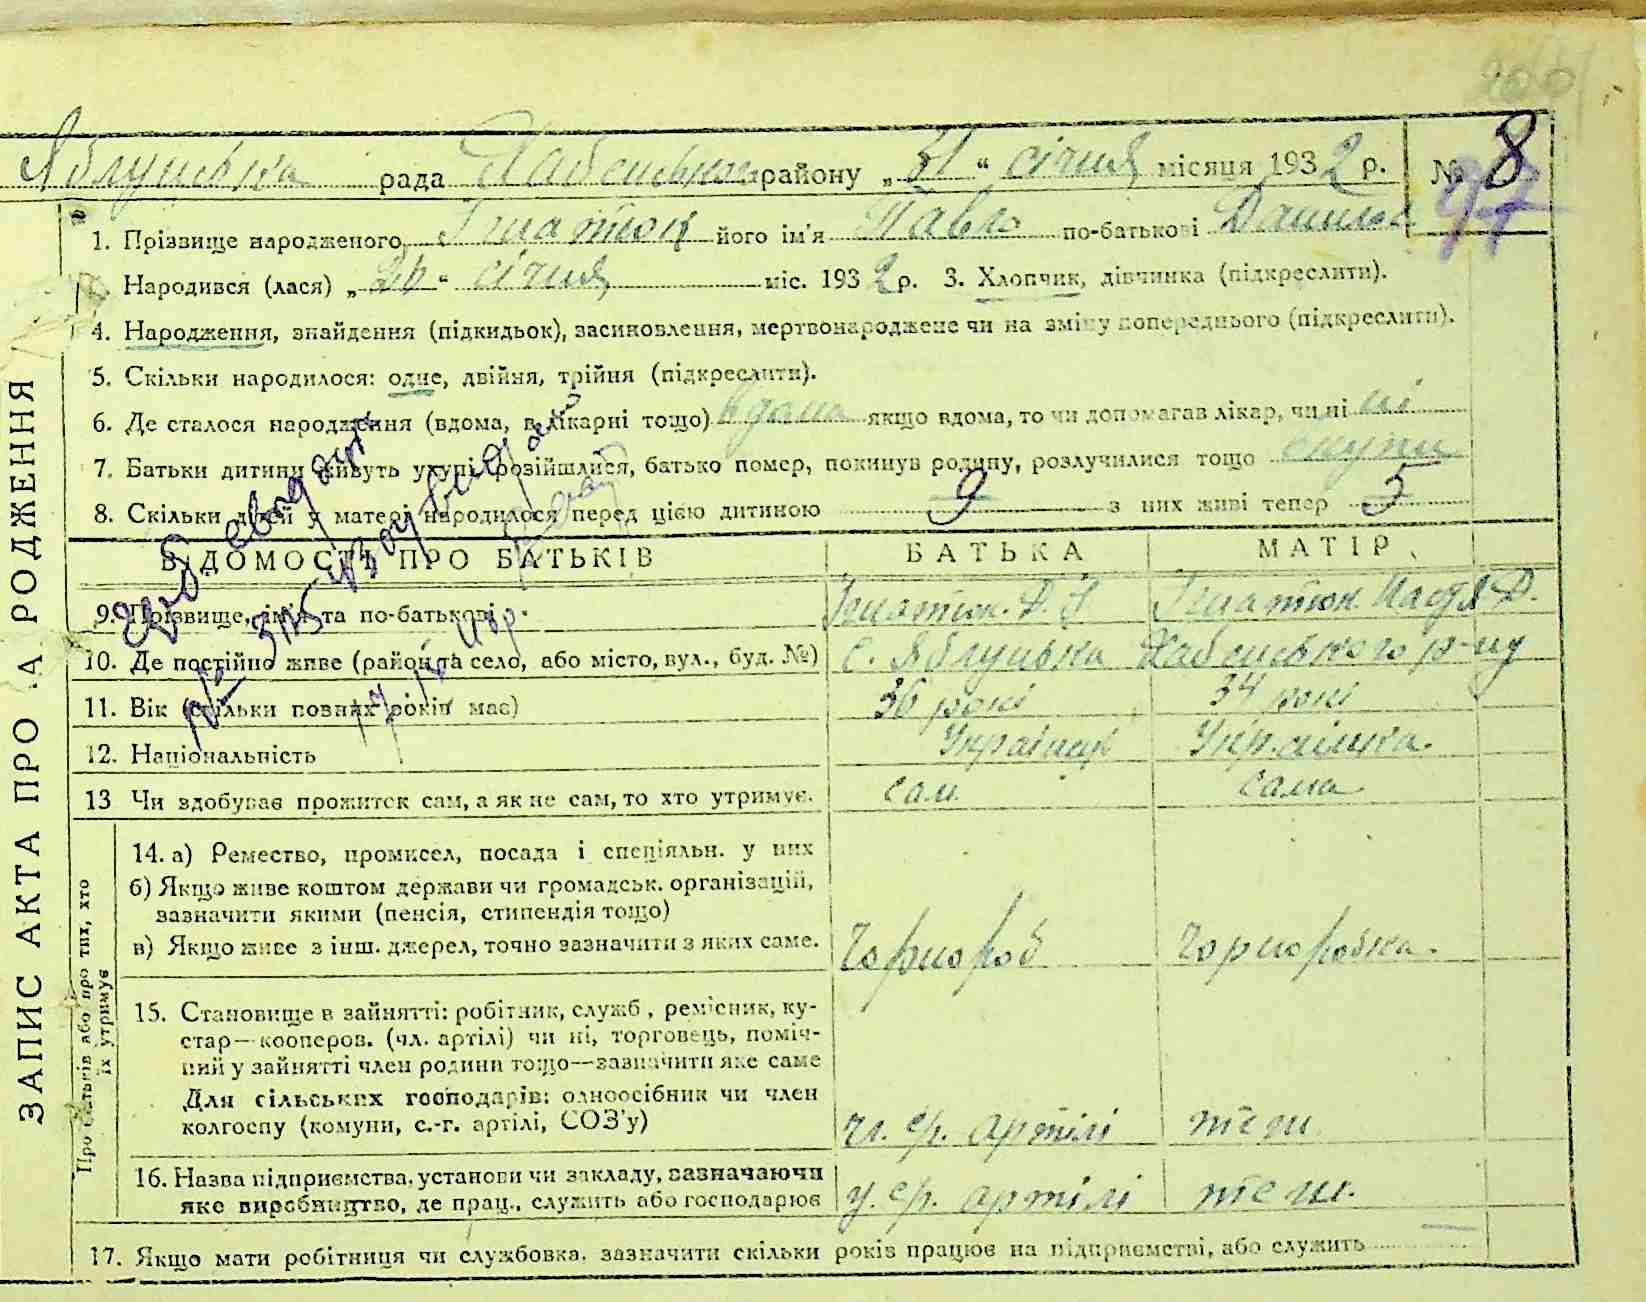 200
Яблунська рада Хабенського району „31“ січня місяця 1932 р. № 8
97
1. Прізвище народженого Ігнатюк його ім'я Павло по-батькові Данилов
Народився (лася) „26“ січня міс. 1932 р. 3. Хлопчик, дівчинка (підкреслити).
4. Народження, знайдення (підкидьок), засиновлення, мертвонароджене чи на зміну попереднього (підкреслити).
5. Скільки народилося: одне, двійня, трійня (підкреслити).
6. Де сталося народження (вдома, в лікарні тощо) вдома якщо вдома, то чи допомагав лікар, чи ні ні
7. Батьки дитини живуть укупі, розійшлися, батько помер, покинув родину, розлучилися тощо вкупи
8. Скільки дітей у матері народилося перед цією дитиною 9 з них живі тепер 5
ВІДОМОСТІ ПРО БАТЬКІВ БАТЬКА МАТІР
9. Прізвище, ім'я та по-батькові Ігнатюк Д. І Ігнатюк Надя Д.
10. Де постійно живе (район та село, або місто, вул., буд. №) с. Яблунька Хабенського р-ну
11. Вік (скільки повних років має) 36 рокі 34 рокі
12. Національність Українец Українка.
13 Чи здобуває прожиток сам, а як не сам, то хто утримує. сам сама
14. а) Ремество, промисел, посада і спеціяльн. у них
б) Якщо живе коштом держави чи громадськ. організацій,
зазначити якими (пенсія, стипендія тощо)
в) Якщо живе з інш. джерел, точно зазначити з яких саме. Чорнороб Чорноробка.
15. Становище в зайнятті: робітник, служб, ремісник, ку-
стар—кооперов. (чл. артілі) чи ні, торговець, поміч-
ний у зайнятті член родини тощо—зазначити яке саме
Для сільських господарів: одноосібник чи член
колгоспу (комуни, с.-г. артілі, СОЗ'у) чл. ср. артілі теж
16. Назва підприємства, установи чи закладу, зазначаючи
яке виробництво, де прац., служить або господарює у ср. артілі теж.
17. Якщо мати робітниця чи службовка, зазначити скільки років працює на підприємстві, або служить —
ЗАПИС АКТА ПРО РОДЖЕННЯ
Про батьків або про тих, хто
їх утримує